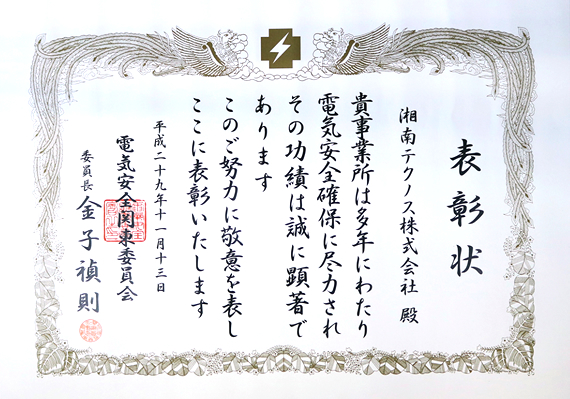 表彰状
湘南テクノス株式会社 殿
貴事業所は多年にわたり
電気安全確保に尽力され
その功績は誠に顕著で
あります
このご努力に敬意を表し
ここに表彰いたします
平成二十九年十一月十三日
電気安全関東委員会
委員長 金子禎則